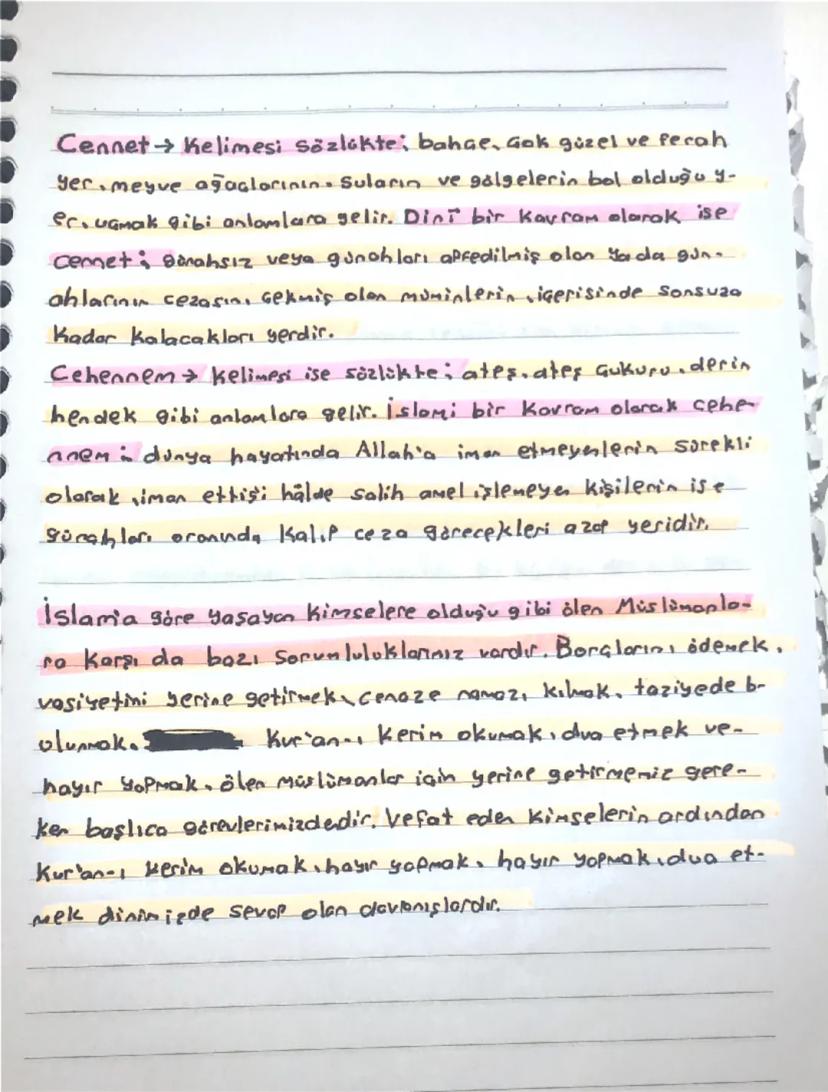 Cennet → Kelimesi sözlükte; bahçe, çok güzel ve ferah
yer, meyve ağaçlarının, suların ve gölgelerin bol olduğu y-
er, uçmak gibi anlamlara gelir. Dinî bir kavram olarak ise
cennet; günahsız veya günahları affedilmiş olan ya da gün-
ahlarının cezasını çekmiş olan müminlerin, içerisinde sonsuza
kadar kalacakları yerdir.
Cehennem → kelimesi ise sözlükte; ateş, ateş çukuru, derin
hendek gibi anlamlara gelir. İslami bir kavram olarak cehe-
nnem; dünya hayatında Allah'a iman etmeyenlerin sürekli
olarak, iman ettiği hâlde salih amel işlemeyen kişilerin ise
günahları oranında kalıp ceza görecekleri azap yeridir.
İslam'a göre yaşayan kimselere olduğu gibi ölen Müslümanla-
ra karşı da bazı sorumluluklarımız vardır. Borçlarını ödemek,
vasiyetini yerine getirmek, cenaze namazı kılmak, taziyede b-
ulunmak, Kur'an-ı Kerim okumak, dua etmek ve-
hayır yapmak, ölen müslümanlar için yerine getirmemiz gere-
ken başlıca görevlerimizdedir. Vefat eden kimselerin ardından
Kur'an-ı Kerim okumak, hayır yapmak, hayır yapmak, dua et-
mek dinimizde sevap olan davranışlardır.